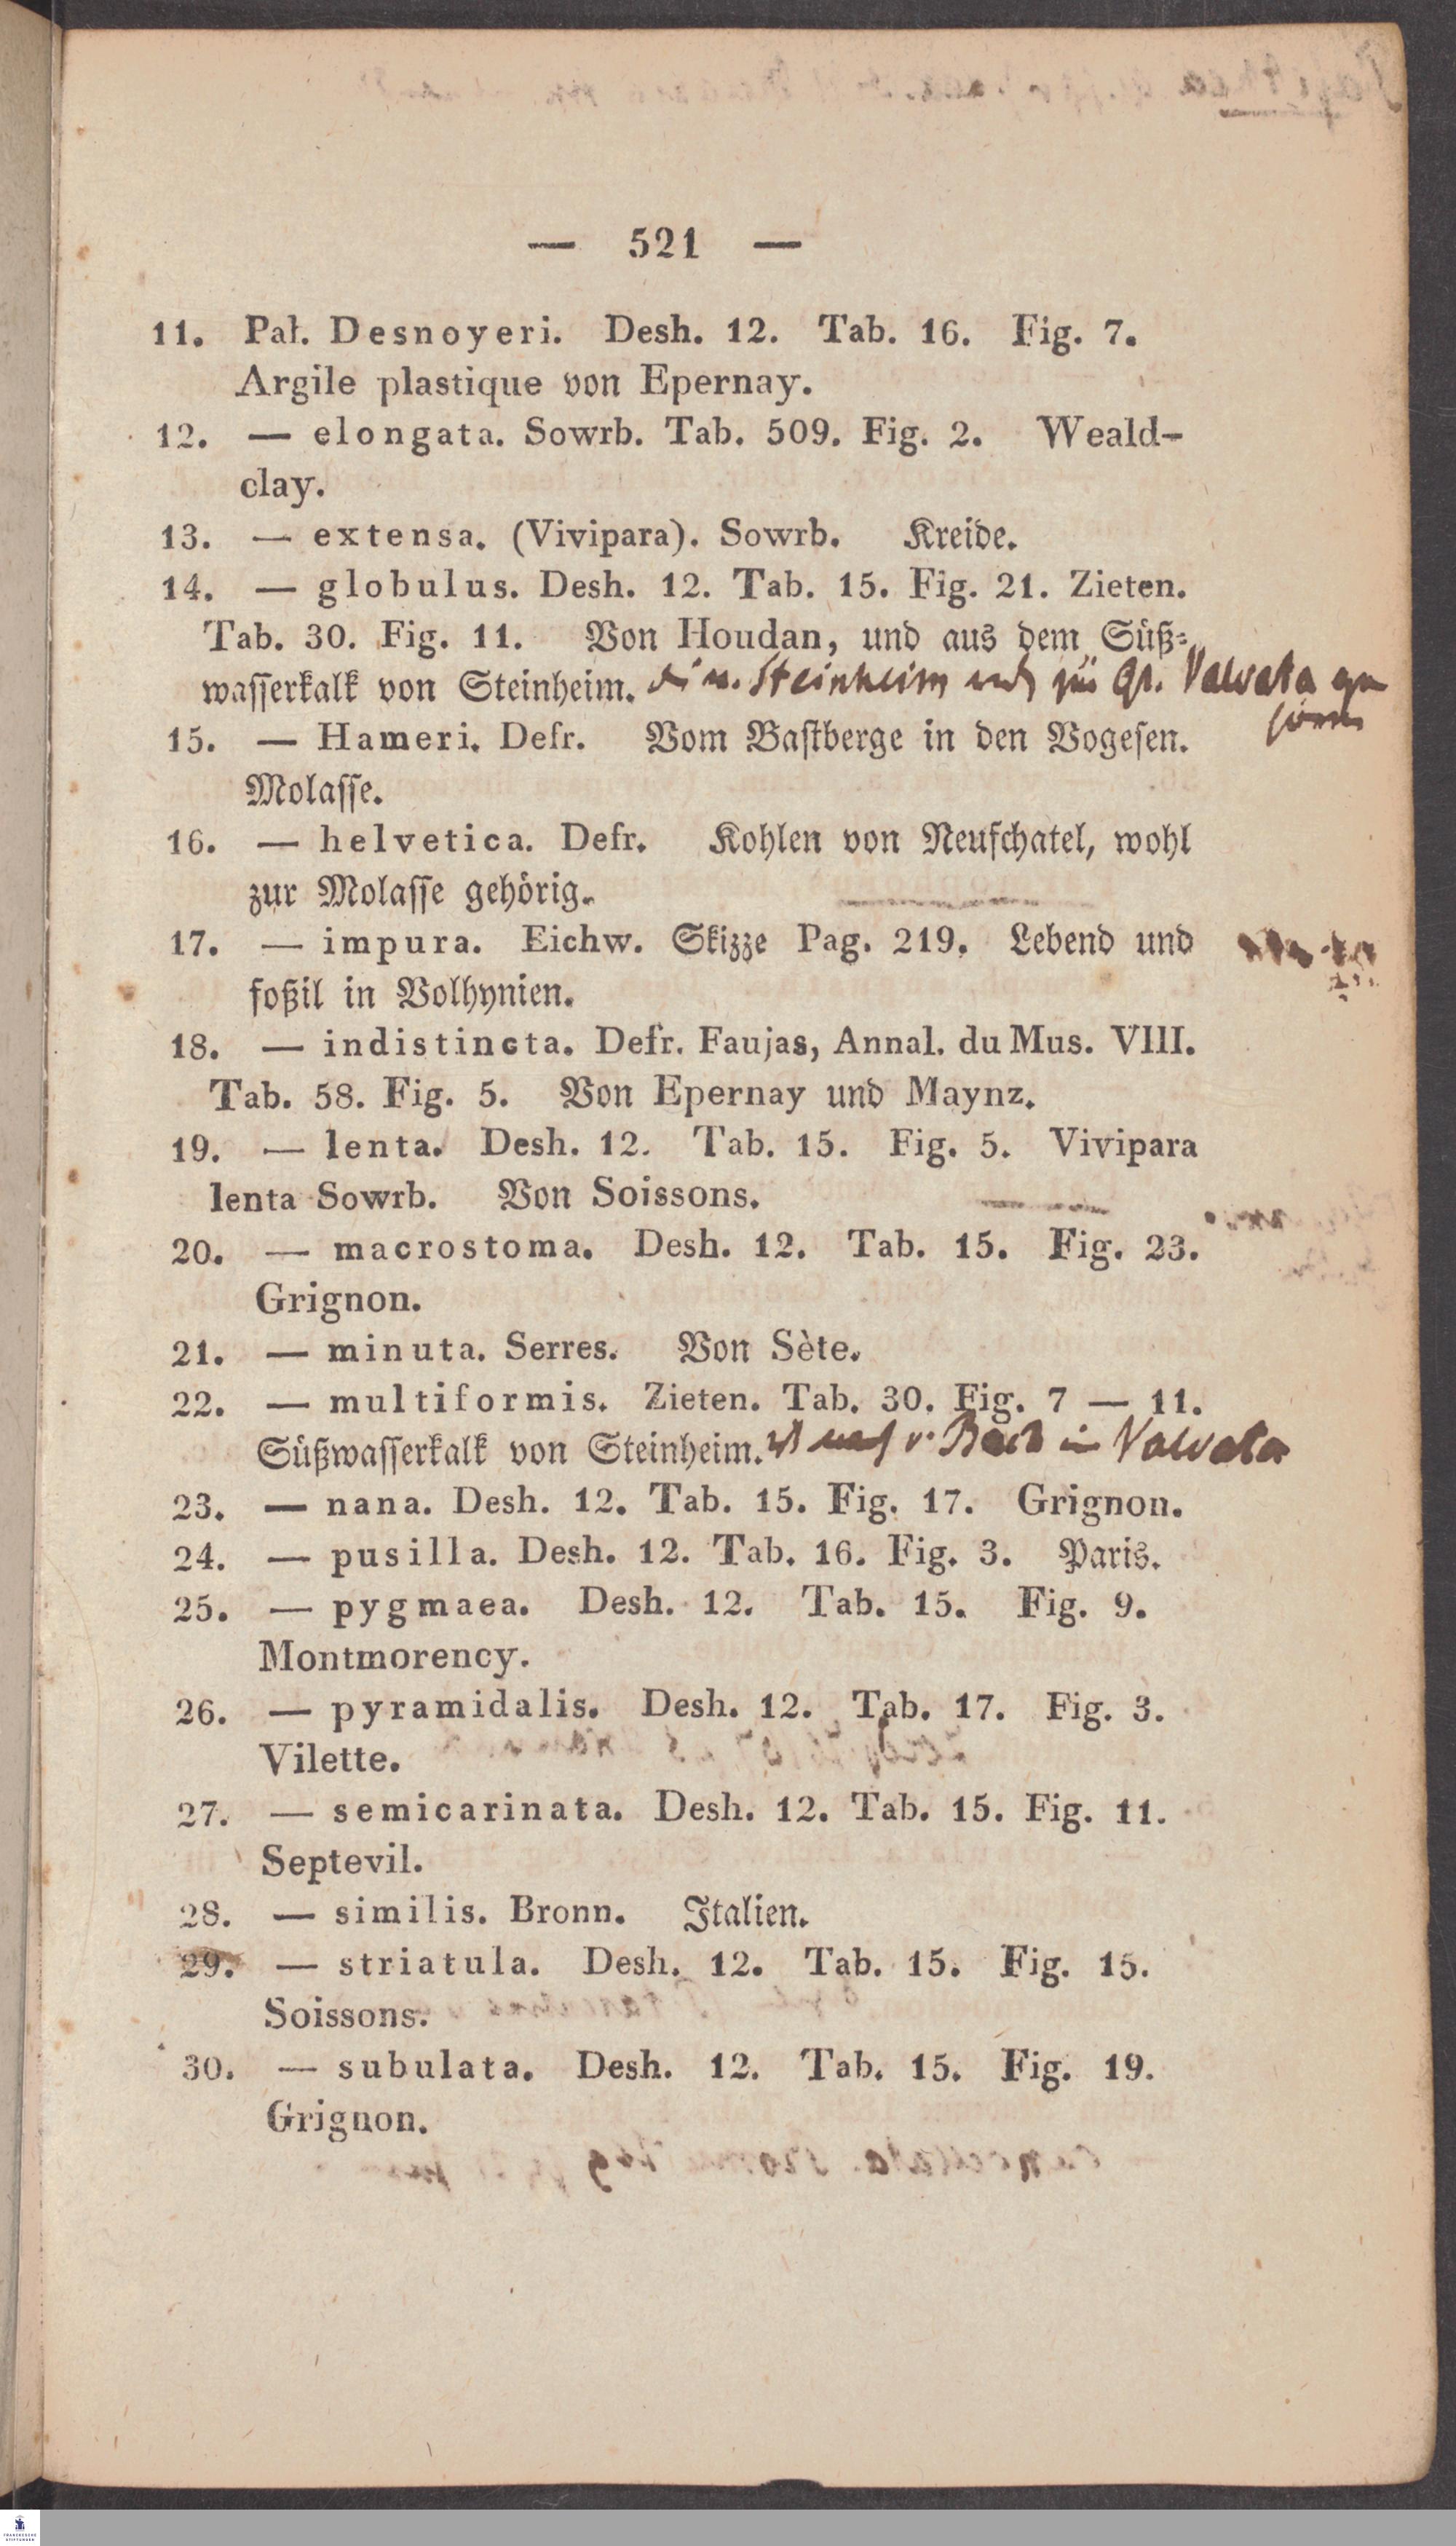 — 521 —
11. Pal. Desnoyeri. Desh. 12. Tab. 16. Fig. 7.
Argile plastique von Epernay.
12. — elongata. Sowrb. Tab. 509. Fig. 2. Weald-
clay.
13. — extensa. (Vivipara). Sowrb. Kreide.
14. — globulus. Desh. 12. Tab. 15. Fig. 21. Zieten.
Tab. 30. Fig. 11. Von Houdan, und aus dem Süß-
wasserkalk von Steinheim. Steinheim Valvata
15. — Hameri. Defr. Vom Bastberge in den Vogesen.
Molasse.
16. — helvetica. Defr. Kohlen von Neufchatel, wohl
zur Molasse gehörig.
17. — impura. Eichw. Skizze Pag. 219. Lebend und
foßil in Volhynien.
18. — indistincta. Defr. Faujas, Annal. du Mus. VIII.
Tab. 58. Fig. 5. Von Epernay und Maynz.
19. — lenta. Desh. 12. Tab. 15. Fig. 5. Vivipara
lenta Sowrb. Von Soissons.
20. — macrostoma. Desh. 12. Tab. 15. Fig. 23.
Grignon.
21. — minuta. Serres. Von Sète.
22. — multiformis. Zieten. Tab. 30. Fig. 7 — 11.
Süßwasserkalk von Steinheim. ist nach v. Buch Valvata
23. — nana. Desh. 12. Tab. 15. Fig. 17. Grignon.
24. — pusilla. Desh. 12. Tab. 16. Fig. 3. Paris.
25. — pygmaea. Desh. 12. Tab. 15. Fig. 9.
Montmorency.
26. — pyramidalis. Desh. 12. Tab. 17. Fig. 3.
Vilette.
27. — semicarinata. Desh. 12. Tab. 15. Fig. 11.
Septevil.
28. — similis. Bronn. Italien.
29. — striatula. Desh. 12. Tab. 15. Fig. 15.
Soissons.
30. — subulata. Desh. 12. Tab. 15. Fig. 19.
Grignon.
FRANCKESCHE
STIFTUNGEN